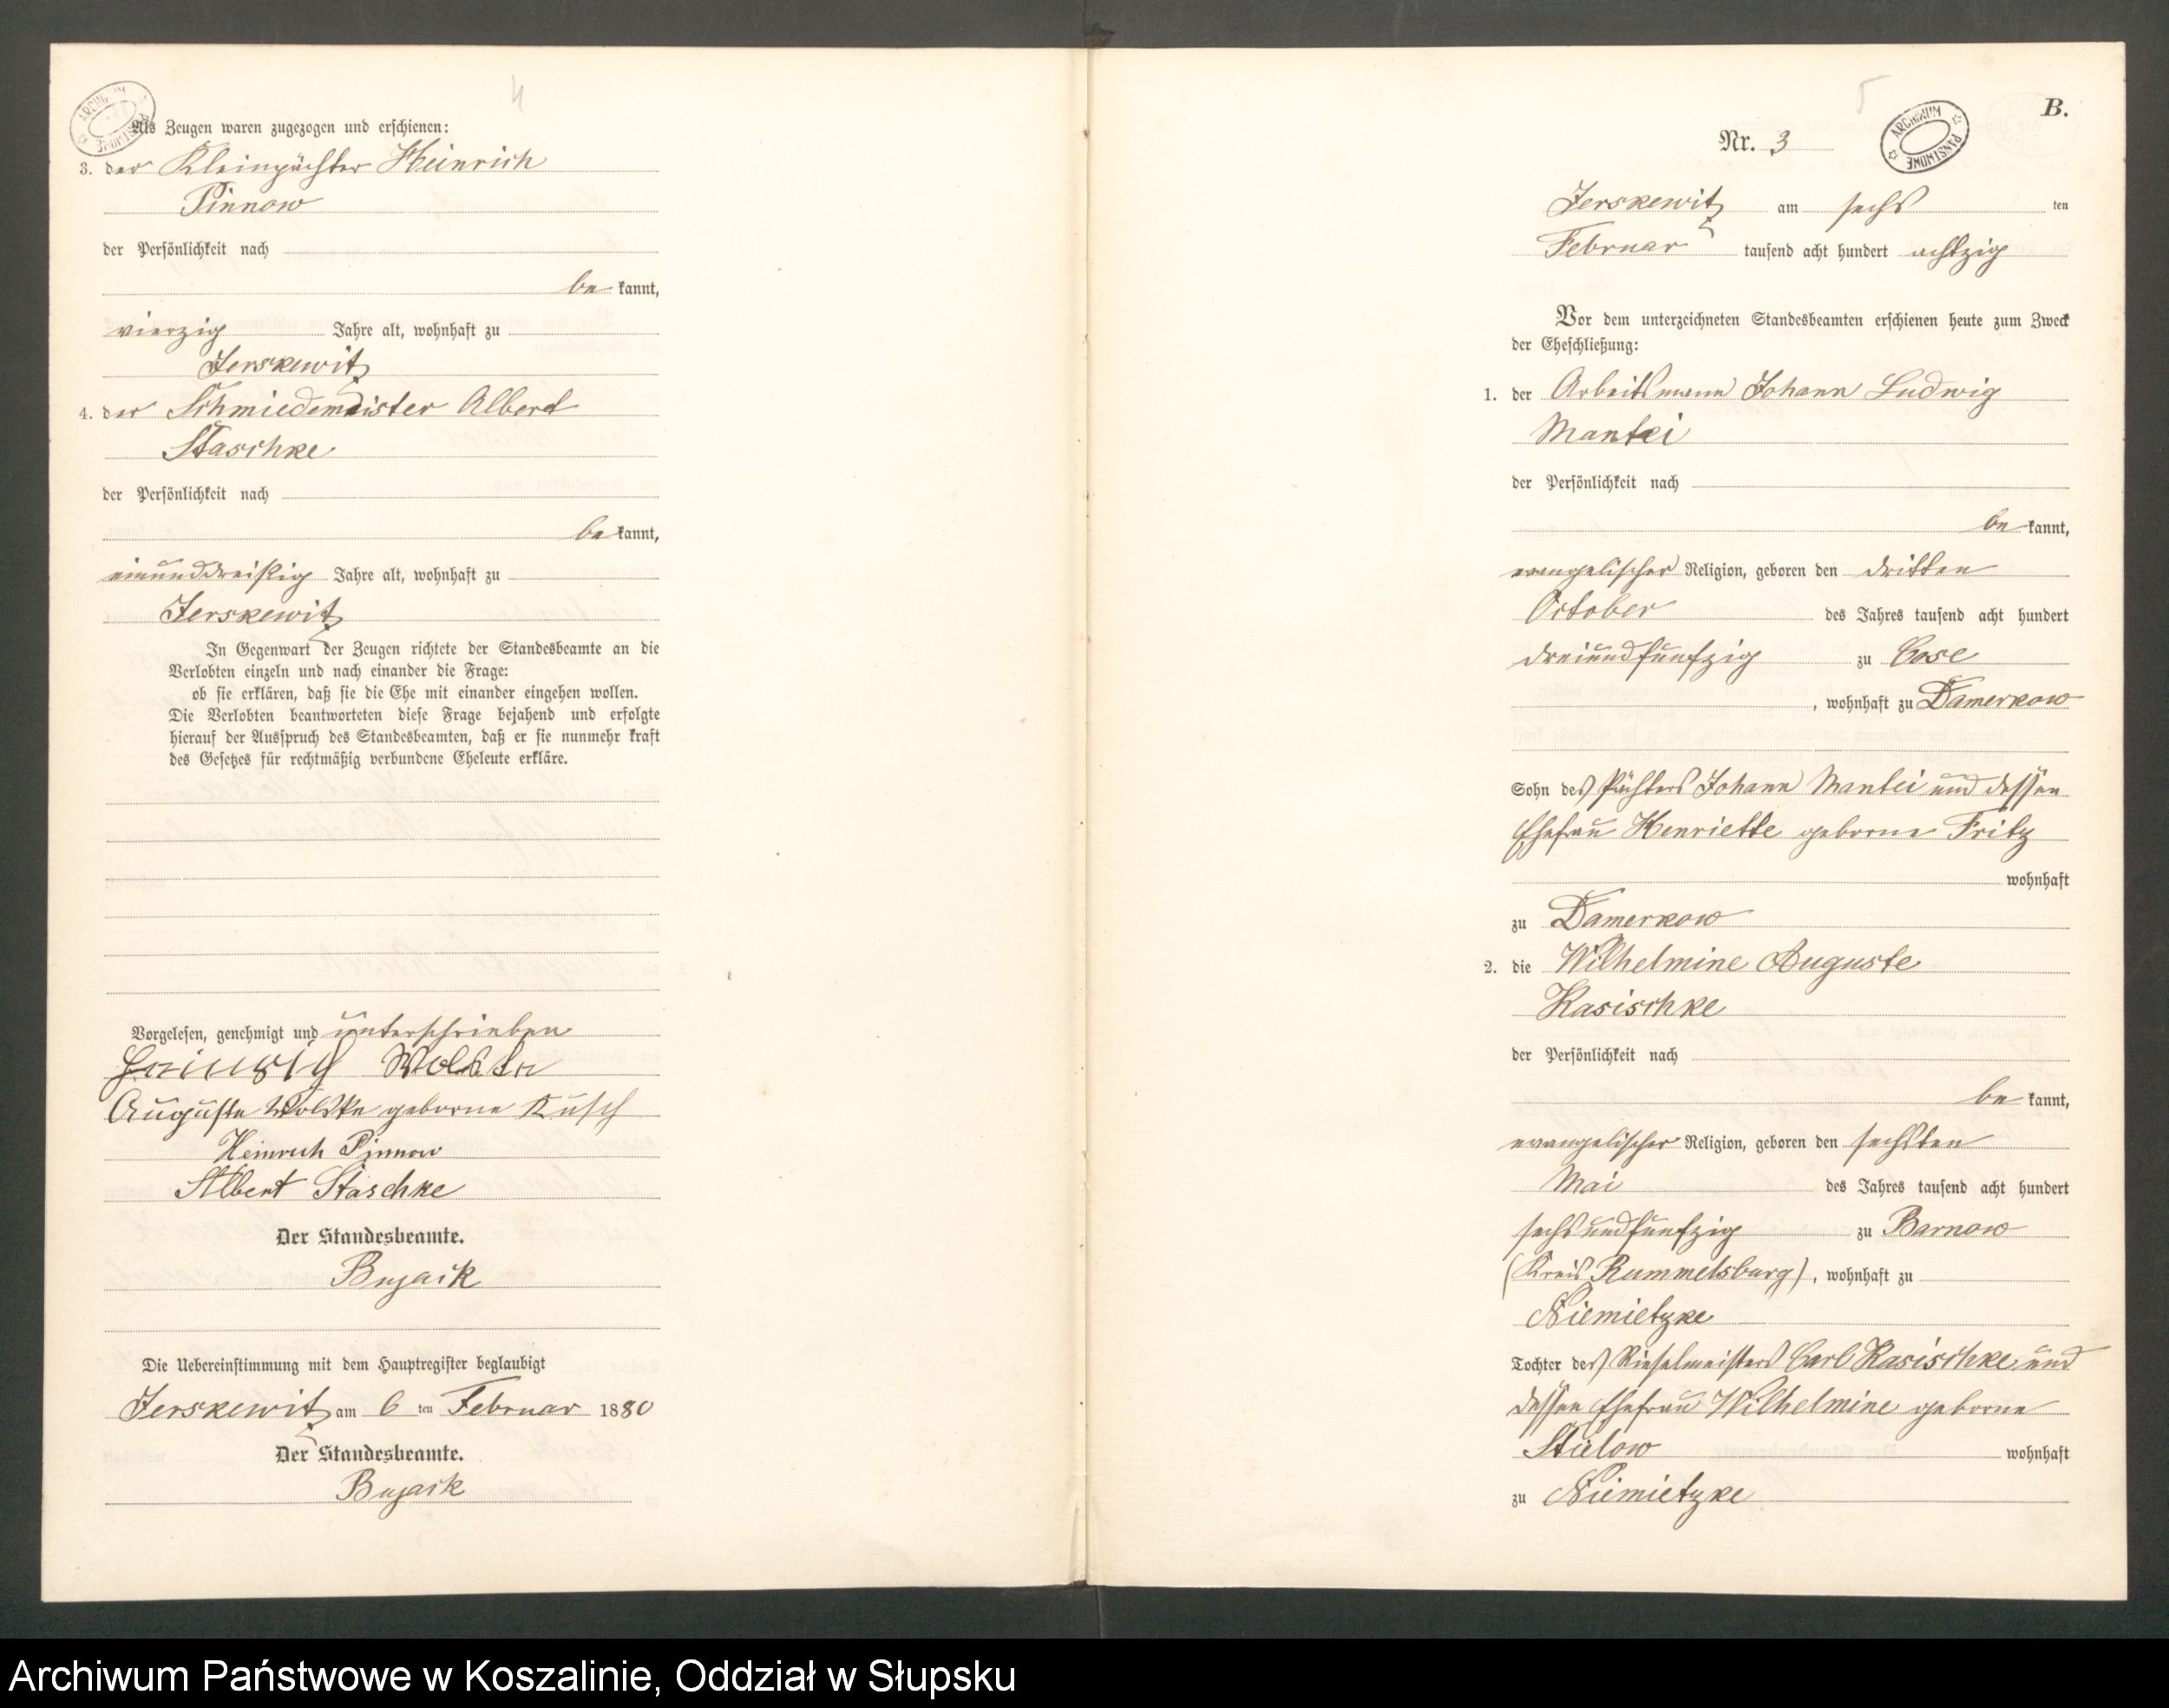 4
ARCHIWUM PAŃSTWOWE
Als Zeugen waren zugezogen und erschienen:
3. der Kleinpächter Heinrich
Pinnow
der Persönlichkeit nach
be kannt,
vierzig Jahre alt, wohnhaft zu
Jerskewitz
4. der Schmiedemeister Albert
Staschke
der Persönlichkeit nach
be kannt,
einunddreißig Jahre alt, wohnhaft zu
Jerskewitz
In Gegenwart der Zeugen richtete der Standesbeamte an die
Verlobten einzeln und nach einander die Frage:
ob sie erklären, daß sie die Ehe mit einander eingehen wollen.
Die Verlobten beantworteten diese Frage bejahend und erfolgte
hierauf der Ausspruch des Standesbeamten, daß er sie nunmehr kraft
des Gesetzes für rechtmäßig verbundene Eheleute erkläre.
Vorgelesen, genehmigt und unterschrieben
Heinrich Wolske
Auguste Wolske geborne Kusch
Heinrich Pinnow
Albert Staschke
Der Standesbeamte.
Bujack
Die Uebereinstimmung mit dem Hauptregister beglaubigt
Jerskewitz am 6 ten Februar 1880
Der Standesbeamte.
Bujack
5
B.
ARCHIWUM PAŃSTWOWE
Nr. 3
Jerskewitz am sechs ten
Februar tausend acht hundert achtzig
Vor dem unterzeichneten Standesbeamten erschienen heute zum Zweck
der Eheschließung:
1. der Arbeitsmann Johann Ludwig
Mantei
der Persönlichkeit nach
be kannt,
evangelischer Religion, geboren den dritten
October des Jahres tausend acht hundert
dreiundfunfzig zu Cose
, wohnhaft zu Damerkow
Sohn des Pächters Johann Mantei und dessen
Ehefrau Henriette geborne Fritz
wohnhaft
zu Damerkow
2. die Wilhelmine Auguste
Kasischke
der Persönlichkeit nach
be kannt,
evangelischer Religion, geboren den sechsten
Mai des Jahres tausend acht hundert
sechsundfunfzig zu Barnow
(Kreis Rummelsburg), wohnhaft zu
Niemietzke
Tochter des Rieselmeisters Carl Kasischke und
dessen Ehefrau Wilhelmine geborne
Stielow wohnhaft
zu Niemietzke
Archiwum Państwowe w Koszalinie, Oddział w Słupsku